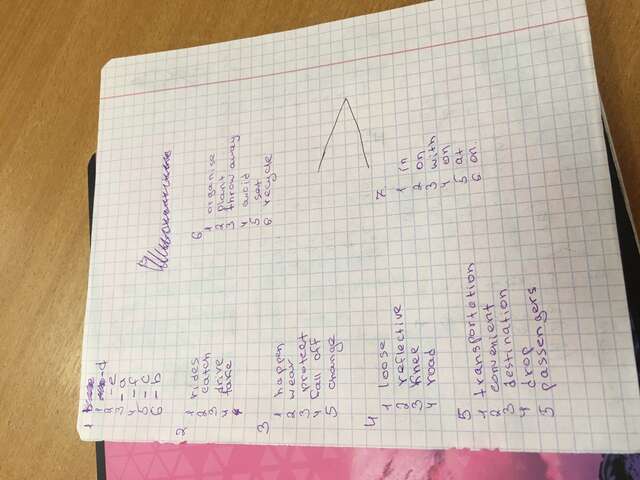 1
1 - d
2 - e
3 - a
4 - f
5 - c
6 - b
2
1 rides
2 catch
3 drive
4 take
3
1 happen
2 wear
3 protect
4 fall off
5 change
4
1 loose
2 reflective
3 knee
4 road
5
1 transportation
2 convenient
3 destination
4 drop
5 passengers
6
1 organise
2 plant
3 throw away
4 avoid
5 set
6 recycle
7.
1 in
2 on
3 with
4 on
5 at
6 on